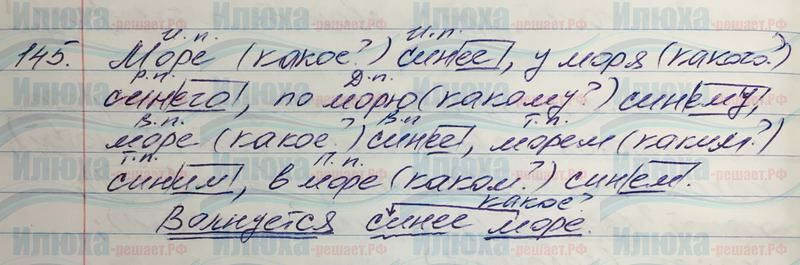 И. п. И. п.
145. Море (какое?) синее, у моря (какого?)
Р. п. Д. п.
синего, по морю (какому?) синему,
В. п. В. п. Т. п.
море (какое?) синее, морем (каким?)
Т. п. П. п.
синим, в море (каком?) синем.
какое?
Волнуется синее море.
Илюха-решает.РФ